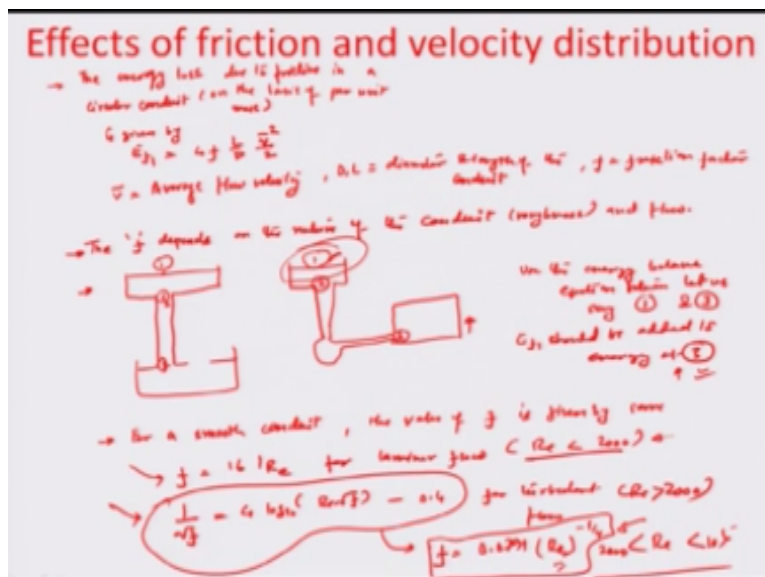 Effects of friction and velocity distribution
→ The energy loss due to friction in a
circular conduit (on the basis of per unit
mass)
is given by
Ef1 = 4f L/D v̄²/2
v̄ = Average flow velocity, D, L = diameter & length of the conduit, f = friction factor
→ The 'f' depends on the nature of the conduit (roughness) and flow.
→
① ② ③
① ② ③
In the energy balance
equation let us
say ① & ③
Ef1 should be added to
energy at ③
→ For a smooth conduit, the value of f is given by
→ f = 16 / Re for laminar flow (Re < 2000)
→ 1/√f = 4 log10 (Re√f) - 0.4 for turbulent (Re > 2000)
flow
→ f = 0.0791 (Re)^-1/4 2000 < Re <